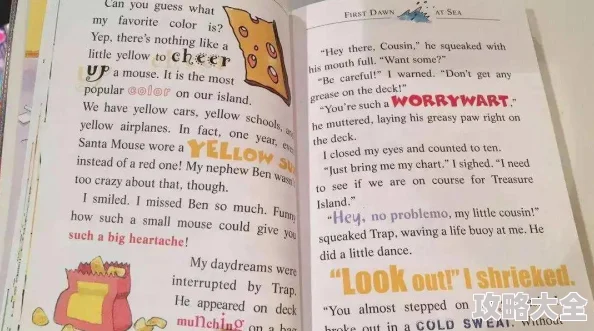 Can you guess what
my favorite color is?
Yep, there's nothing like a
little yellow to cheer
up a mouse. It is the most
popular color on our island.
We have yellow cars, yellow schools, and
yellow airplanes. In fact, one year, even
Santa Mouse wore a YELLOW
instead of a red one! My nephew Ben wasn't
too crazy about that, though.
I smiled. I missed Ben so much. Funny
how such a small mouse could give you
such a big heartache!
My daydreams were
interrupted by Trap.
He appeared on deck
munching on a bag
FIRST DAWN AT SEA
"Hey there, Cousin," he squeaked with
his mouth full. "Want some?"
"Be careful!" I warned. "Don't get any
grease on the deck!"
"You're such a WORRYWART,"
he muttered, laying his greasy paw right on
the deck.
I closed my eyes and counted to ten.
"Just bring me my chart." I sighed. "I need
to see if we are on course for Treasure
Island."
"Hey, no problemo, my little cousin!"
squeaked Trap, waving a life buoy at me. He
did a little dance.
"Look out!" I shrieked.
"You almost stepped on
broke out in a COLD SWEAT without
攻略大全